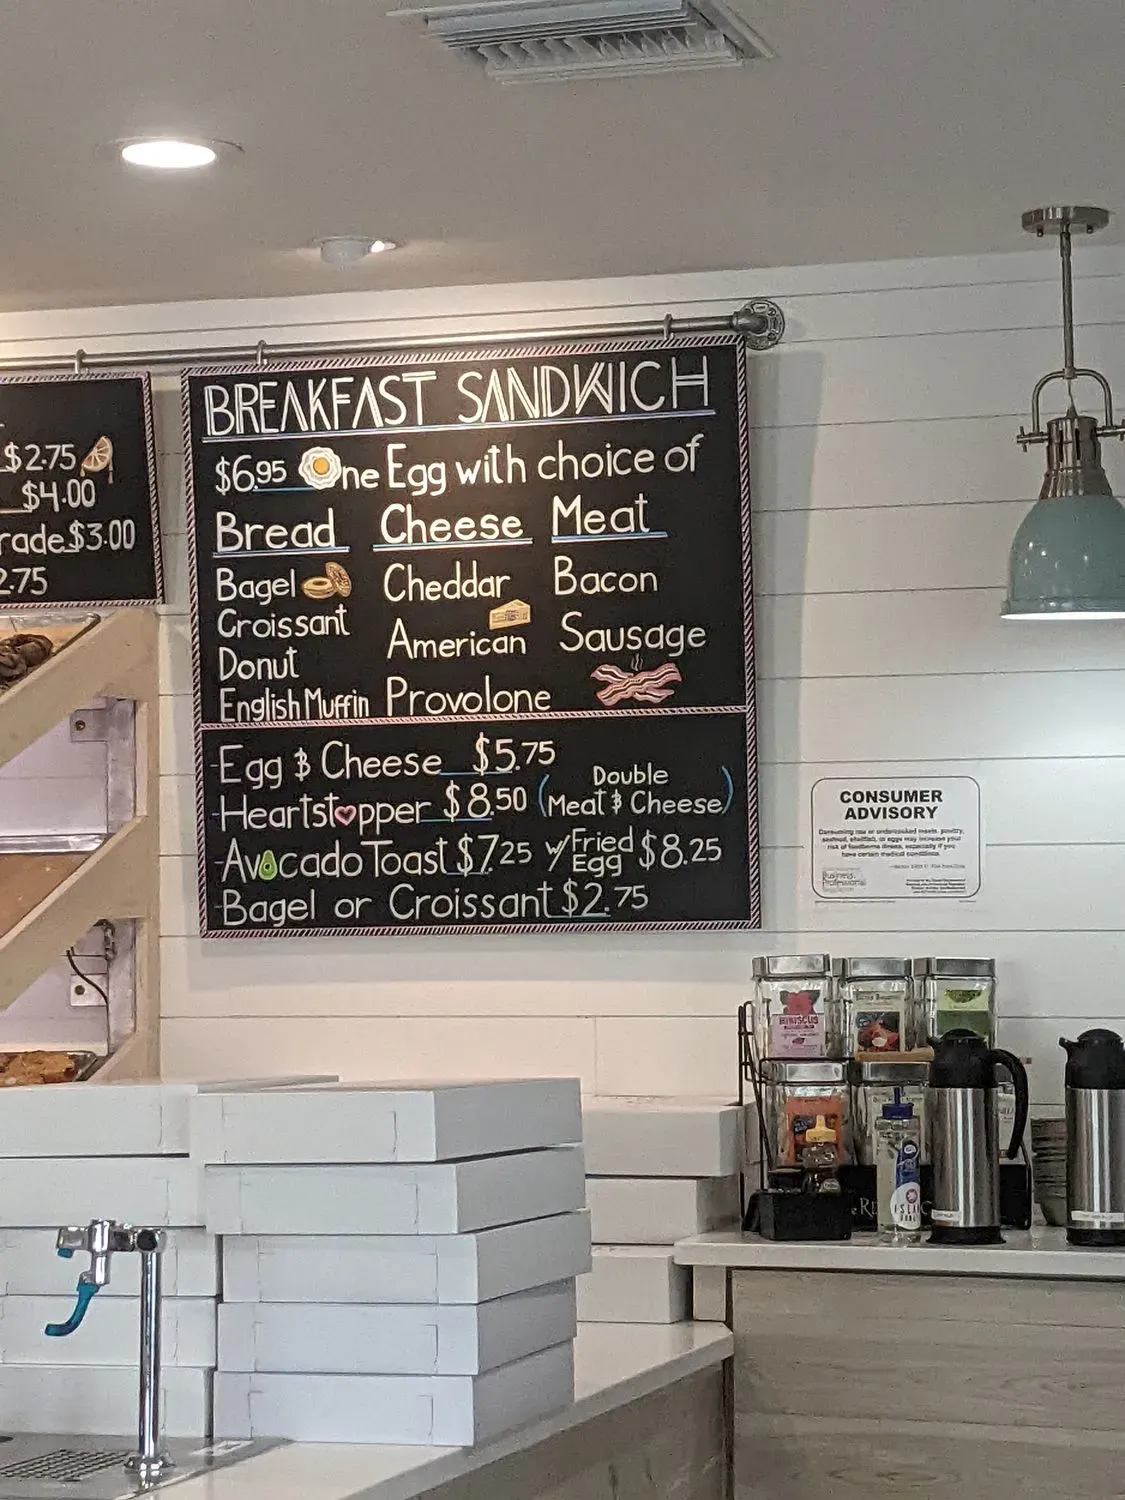 $2.75
$4.00
rade $3.00
2.75
BREAKFAST SANDWICH
$6.95 One Egg with choice of
Bread Cheese Meat
Bagel Cheddar Bacon
Croissant American Sausage
Donut
English Muffin Provolone
-Egg & Cheese $5.75
-Heartstopper $8.50 (Double Meat & Cheese)
-Avocado Toast $7.25 w/Fried Egg $8.25
-Bagel or Croissant $2.75
CONSUMER
ADVISORY
Consuming raw or undercooked meats, poultry,
seafood, shellfish, or eggs may increase your
risk of foodborne illness, especially if you
have certain medical conditions.
Business
Professional
HIBISCUS